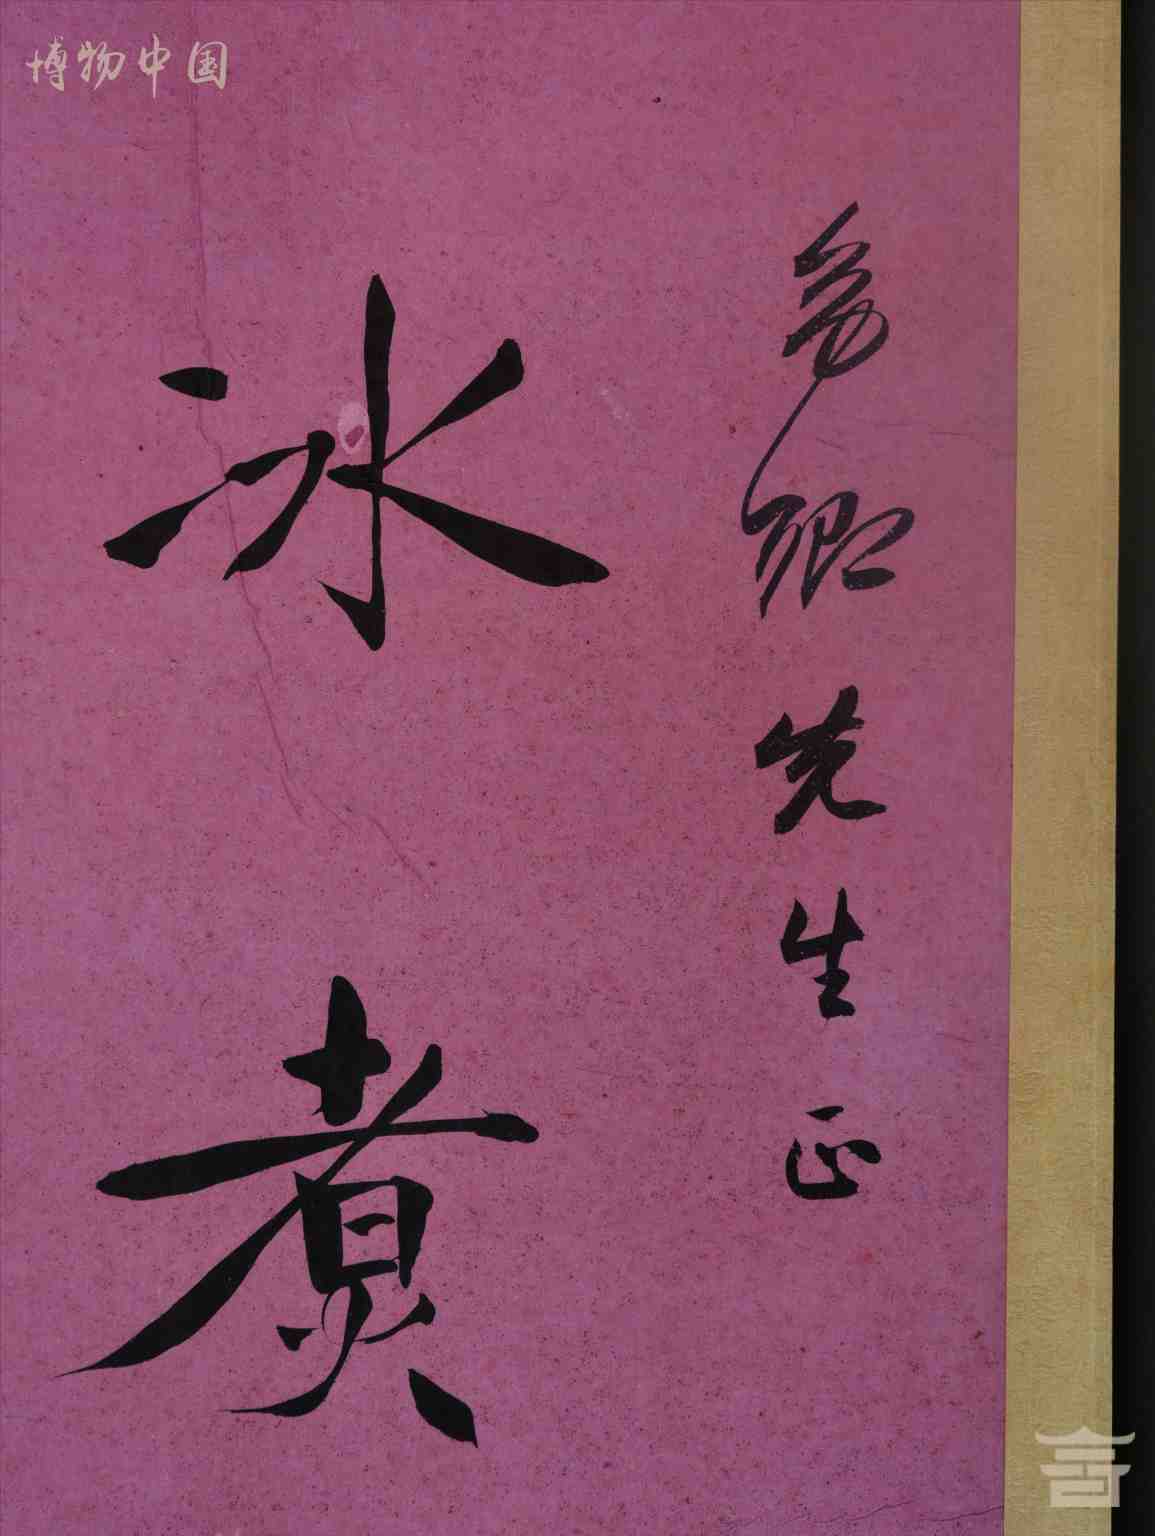 博物中国
卿先生正
冰
煑